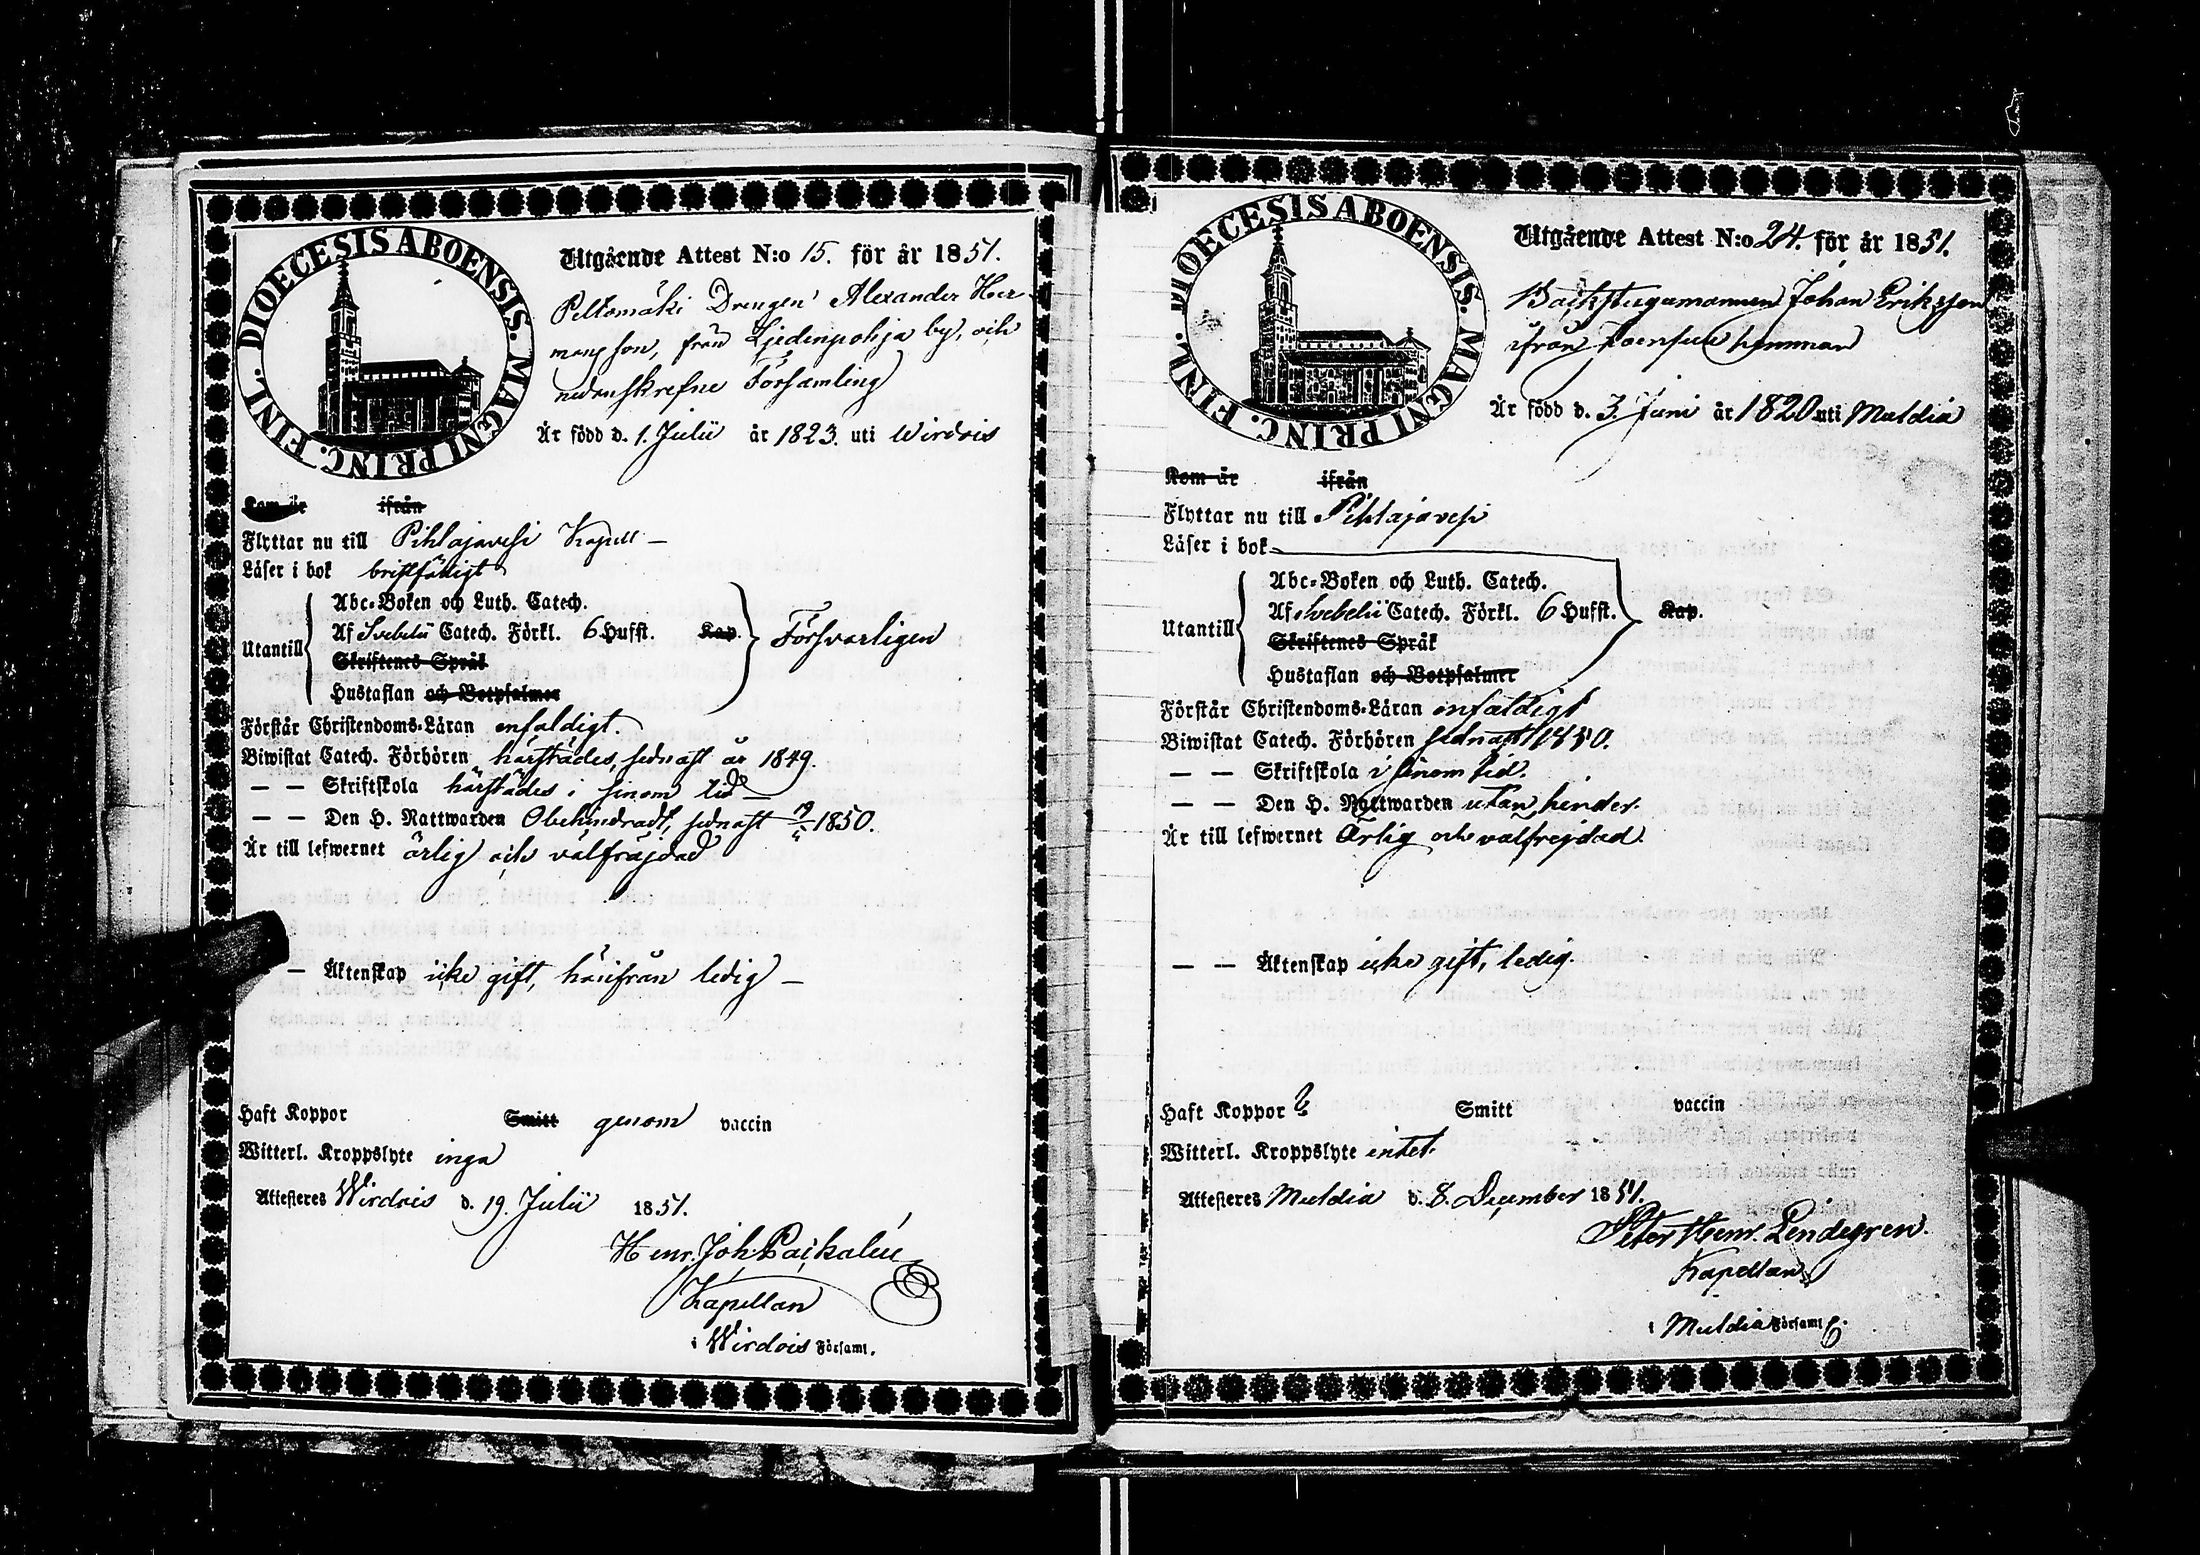 DIOECESIS ABOENSIS. MAGNI PRINC. FINL.
Utgående Attest N:o 15. för år 1851.
Peltomäki Drengen Alexander Her-
mansson, från Liedenpohja by, och
nedanskrefne Församling
Är född d. 1. Julii år 1823. uti Wirdois
Kom år ifrån
Flyttar nu till Pihlajavesi Kapell —
Läser i bok bristfäligt
Utantill
Abc-Boken och Luth. Catech.
Af Svebelii Catech. Förkl. 6 Hufst. Kap. Försvarligen
Skriftenes Språk
Hustaflan och Botpsalmer
Förstår Christendoms-Läran enfaldigt.
Biwistat Catech. Förhören härstädes, sednast år 1849.
— — Skriftskola härstädes i sinom tid —
— — Den H. Nattwarden Obehindradt, sednast 1850.
Är till lefwernet ärlig och välfräjdad
— Äktenskap icke gift, härifrån ledig —
Haft Koppor Smitt genom vaccin
Witterl. Kroppslyte inga
Attesteras Wirdois d. 19. Julii 1851.
Henr. Joh.
Kapellan
i Wirdois Församl.
DIOECESIS ABOENSIS. MAGNI PRINC. FINL.
Utgående Attest N:o 24. för år 1851.
Backstugumannen Johan Eriksson
ifrån hemman
Är född d. 3. Juni år 1820 uti Muldia
Kom år ifrån
Flyttar nu till Pihlajavesi
Läser i bok
Utantill
Abc-Boken och Luth. Catech.
Af Svebelii Catech. Förkl. 6 Hufst. Kap.
Skriftenes Språk
Hustaflan och Botpsalmer
Förstår Christendoms-Läran enfaldigt
Biwistat Catech. Förhören sednast 1850.
— — Skriftskola i sinom tid.
— — Den H. Nattwarden utan hinder.
Är till lefwernet Ärlig och välfrejdad.
— — Äktenskap icke gift, ledig.
Haft Koppor ? Smitt vaccin
Witterl. Kroppslyte intet.
Attesteras Muldia d. 8. December 1851.
Peter Henr. Lindegren.
Kapellan
i Muldia Församl.